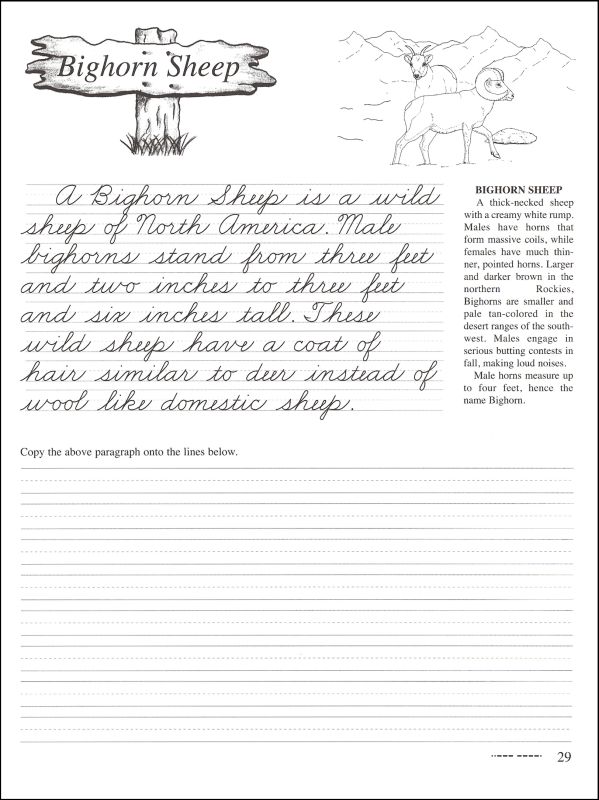 Bighorn Sheep
A Bighorn Sheep is a wild
sheep of North America. Male
bighorns stand from three feet
and two inches to three feet
and six inches tall. These
wild sheep have a coat of
hair similar to deer instead of
wool like domestic sheep.
BIGHORN SHEEP
A thick-necked sheep
with a creamy white rump.
Males have horns that
form massive coils, while
females have much thin-
ner, pointed horns. Larger
and darker brown in the
northern Rockies,
Bighorns are smaller and
pale tan-colored in the
desert ranges of the south-
west. Males engage in
serious butting contests in
fall, making loud noises.
Male horns measure up
to four feet, hence the
name Bighorn.
Copy the above paragraph onto the lines below.
29